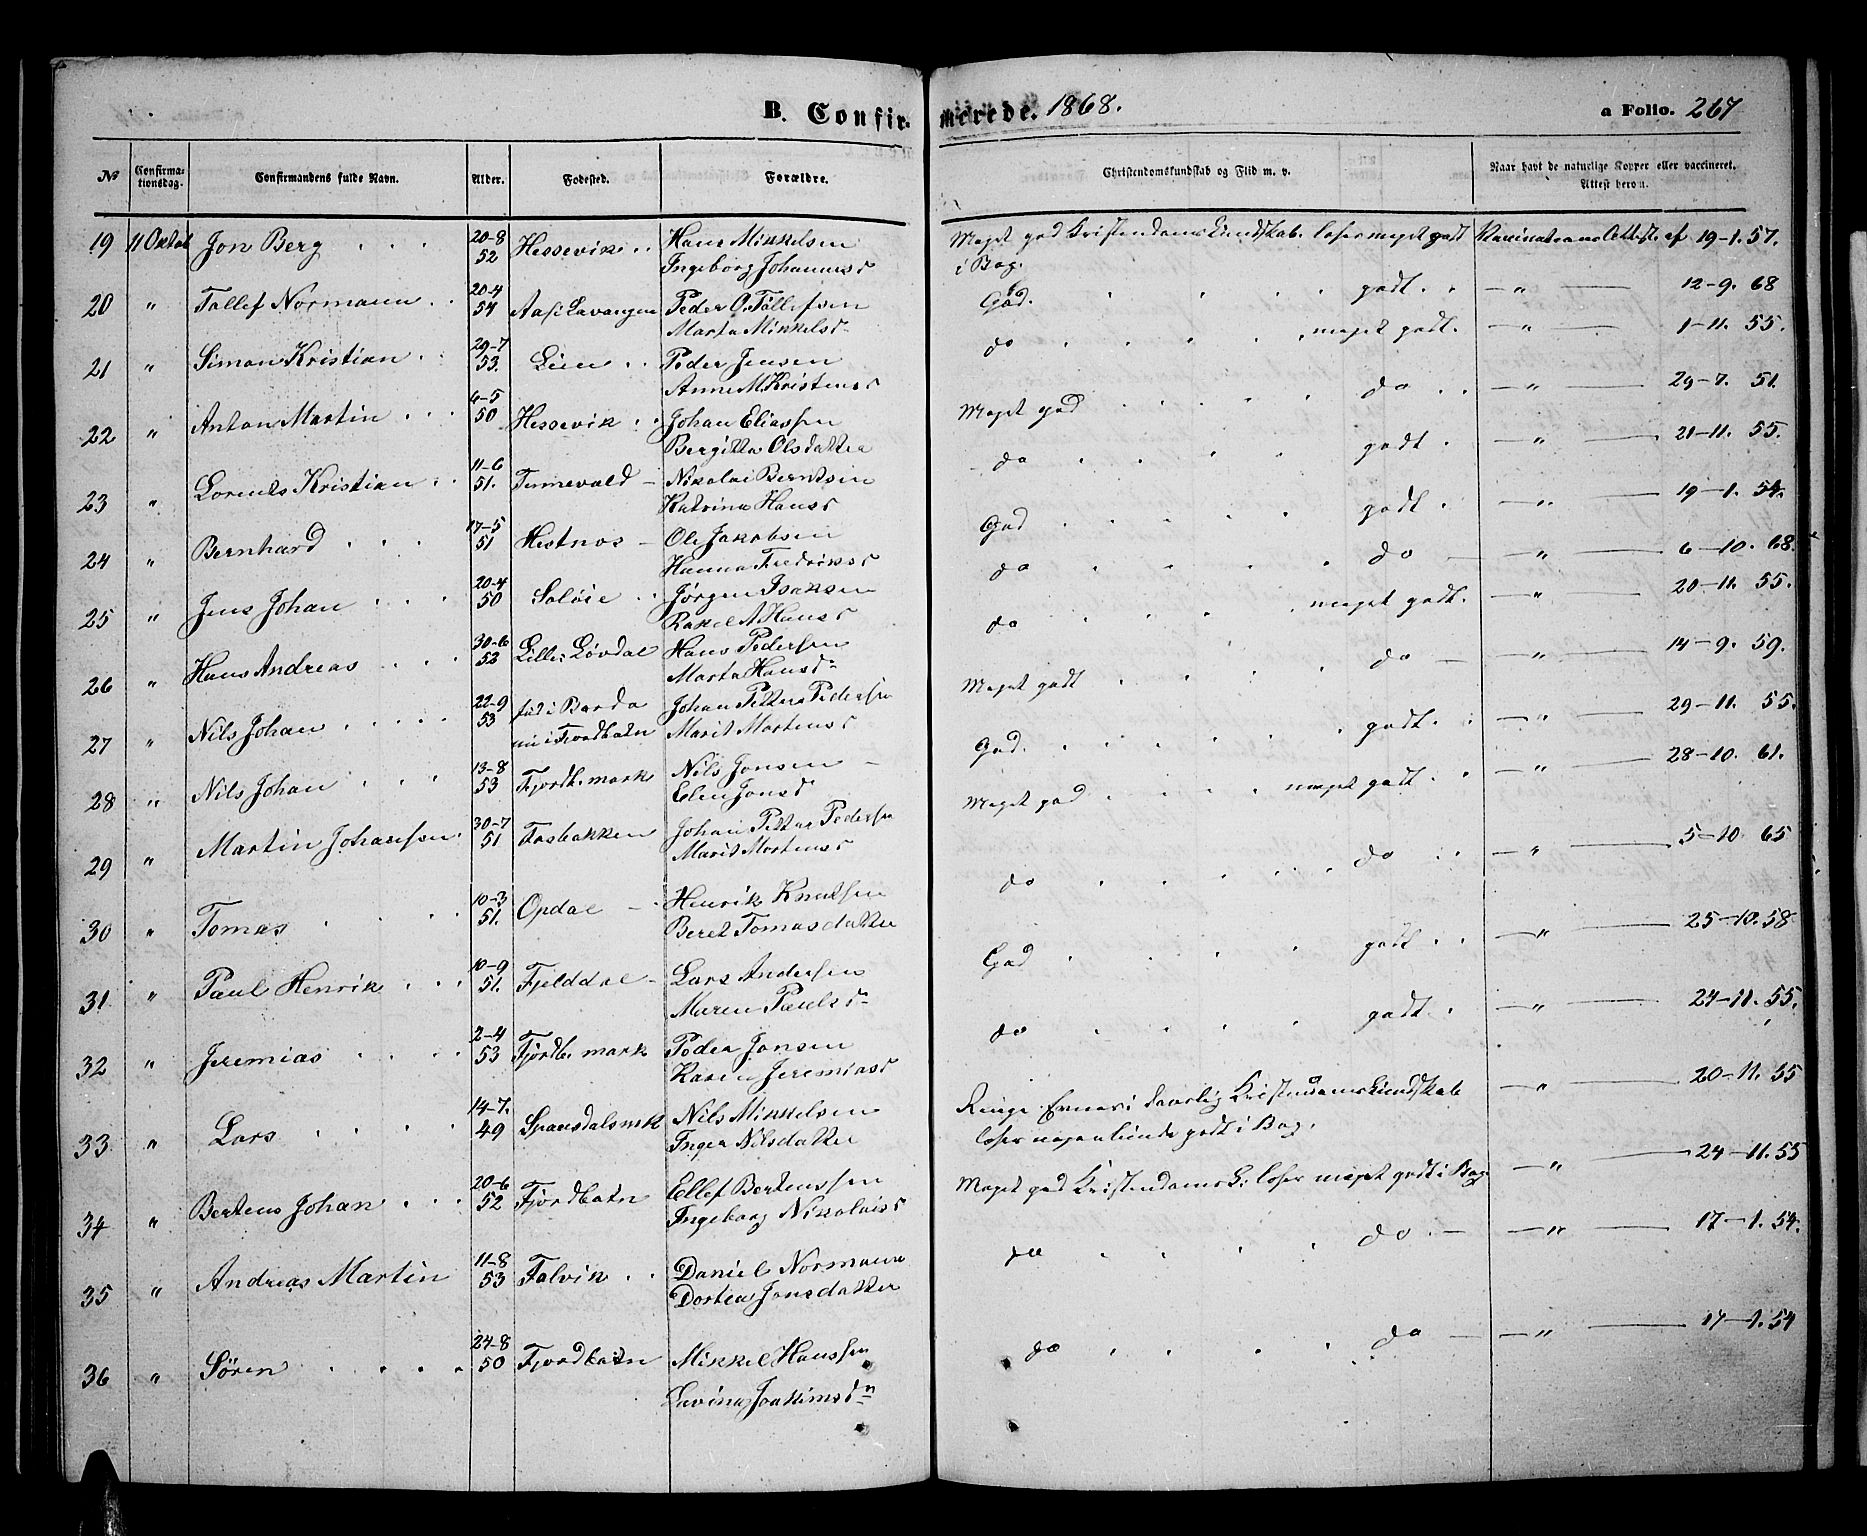 B. Confirmerede. 1868.
a Folio. 267
No
Confirmationsdag.
Confirmandens fulde Navn.
Alder.
Fødested.
Forældre.
Christendomskundskab og Flid m. v.
Naar havt de naturlige Kopper eller vaccineret. Attest herom.
19 11 Oktob Jon Berg 20-8 52 Hessevik Hans Mikkelsen Meget god Kristendomskundskab. læser meget godt Vaccinations Attest af 19-1. 57.
Ingeborg Johannesd i Bog.
20 " Tollef Normann 20-4 54 Peder O. Tollefsen God. godt. — " — 12-9. 68
Marta Mikkelsd
21 " Simon Kristian 29-7 53. Lien Peder Jensen do meget godt. — " — 1-11. 55.
Anne M Kristensd
22 " Anton Martin 6-5 50 Hessevik Johan Eliassen Meget god do — " — 29-7. 51.
Bergitta Olsdatter
23 " Lorents Kristian 11-6 51. Tennevold Nikolai Berntsen do godt — " — 21-11. 55.
Katrina Hansd
24 " Bernhard 17-5 51 Hestnes Ole Jakobsen God godt — " — 19-1. 54.
Hanna Fredriksd
25 " Jens Johan 20-4 50 Soløie Jørgen Isaksen do do — " — 6-10. 68.
Rakel A Hansd
26 " Hans Andreas 30-6 53 Lille Løvdal Hans Pedersen do meget godt. — " — 20-11. 55.
Marta Hansd
27 " Nils Johan 22-9 53 fød i Bardo Johan Petter Pedersen Meget godt do — " — 14-9. 59.
nu i Fjordbotn Marit Mortensd
28 " Nils Johan 13-8 53 Fjordb. mark Nils Jonsen God. godt. — " — 29-11. 55.
Elen Jonsd
29 " Martin Johansen 30-7 51 Fosbakken Johan Petter Pedersen Meget god meget godt — " — 28-10. 61.
Marit Mortensd
30 " Tomas 10-3 51. Opdal Henrik Knutsen do do — " — 5-10. 65
Beret Tomasdatter
31 " Paul Henrik 10-9 51. Fjelddal Lars Andersen God godt — " — 25-10. 58.
Maren Paulsd
32 " Jeremias 2-4 53 Fjordb. mark Peder Jonsen do godt. — " — 24-11. 55.
Karen Jeremiasd
33 " Lars 14-7. 49 Spansdalsmk Nils Mikkelsen Ringe Evner i daarlig Kristendomskundskab — " — 20-11. 55
Inger Nilsdatter læser nogenlunde godt i Bog.
34 " Bertens Johan 20-6 52 Fjordbotn Ellef Bertenssen Meget god Kristendomsk. læser meget godt i Bog — " — 24-11. 55
Ingeborg Nikolaisd
35 " Andreas Martin 11-8 53 Falvik Daniel Normann do do — " — 17-1. 54.
Dortea Jonsdatter
36 " Søren 24-8 50 Fjordbotn Mikkel Hanssen do do — " — 17-1. 54
Lavina Joakimsd